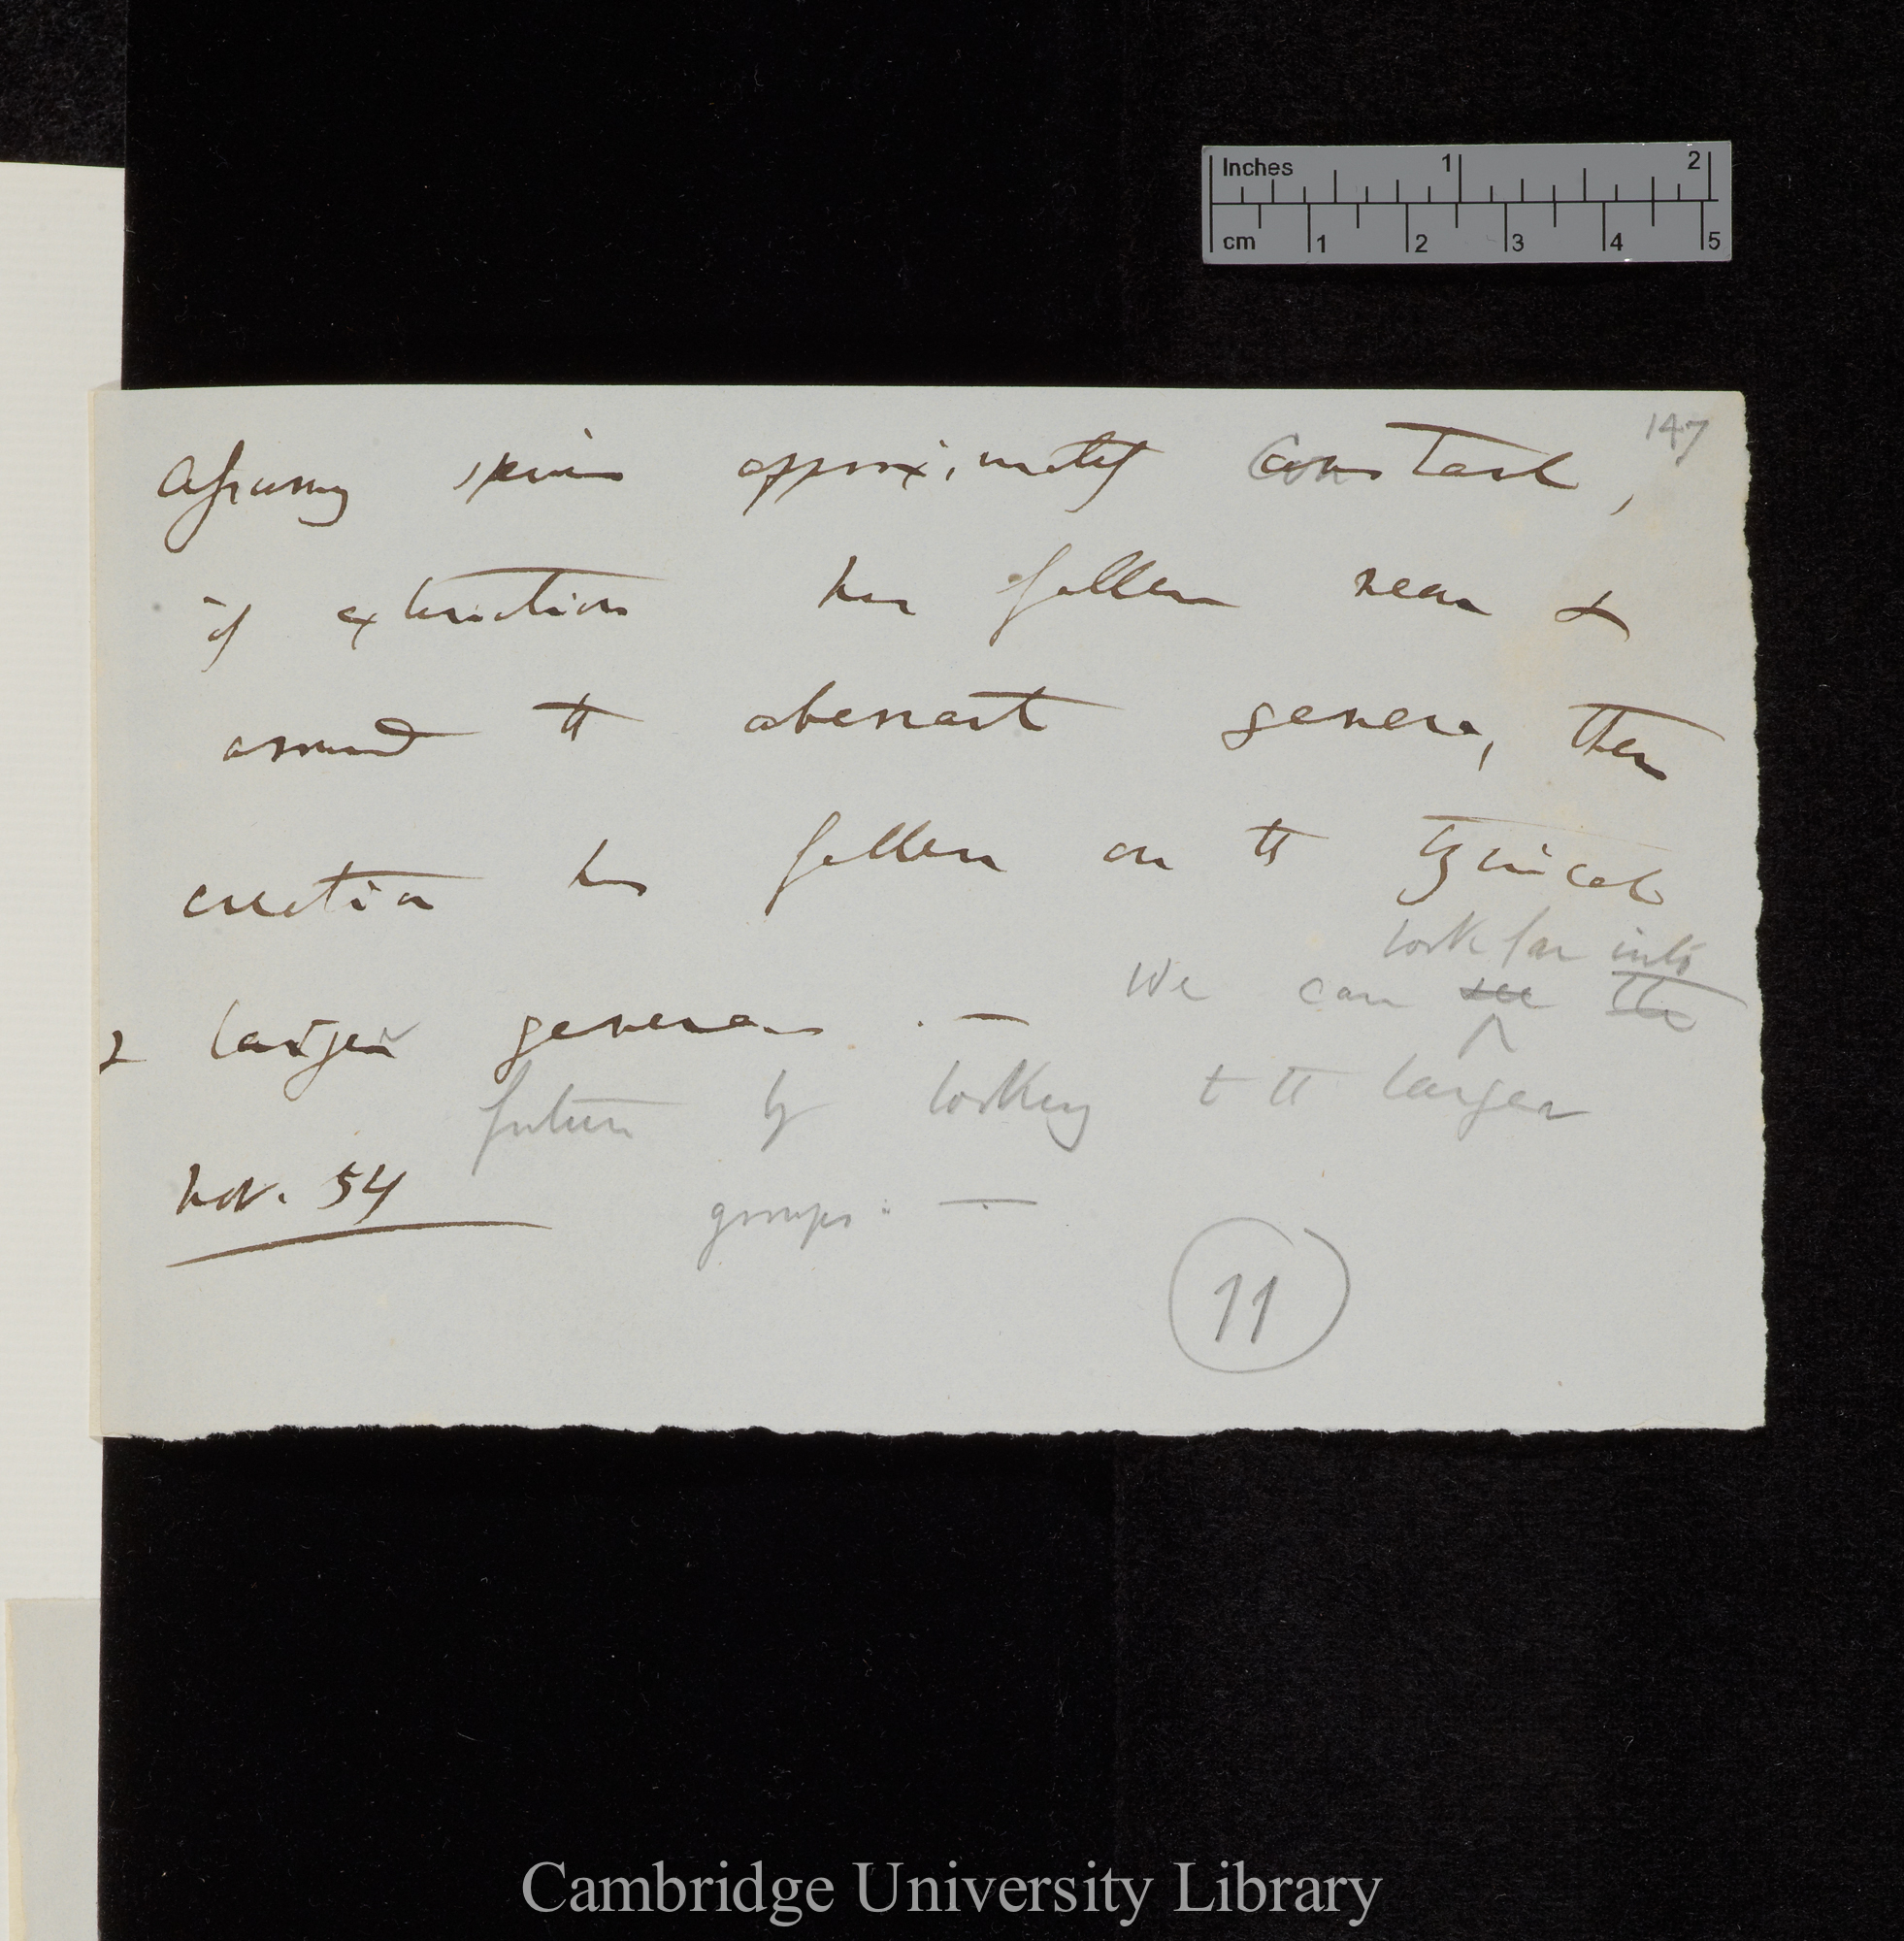 147
Assuming species approximately constant,
if extinction has fallen near &
around the aberrant genera, then
creation has fallen on the typical
& larger genera. —
We can see the
look far into
future by looking to the larger
groups. —
Nov. 54
11
Inches 1 2
cm 1 2 3 4 5
Cambridge University Library